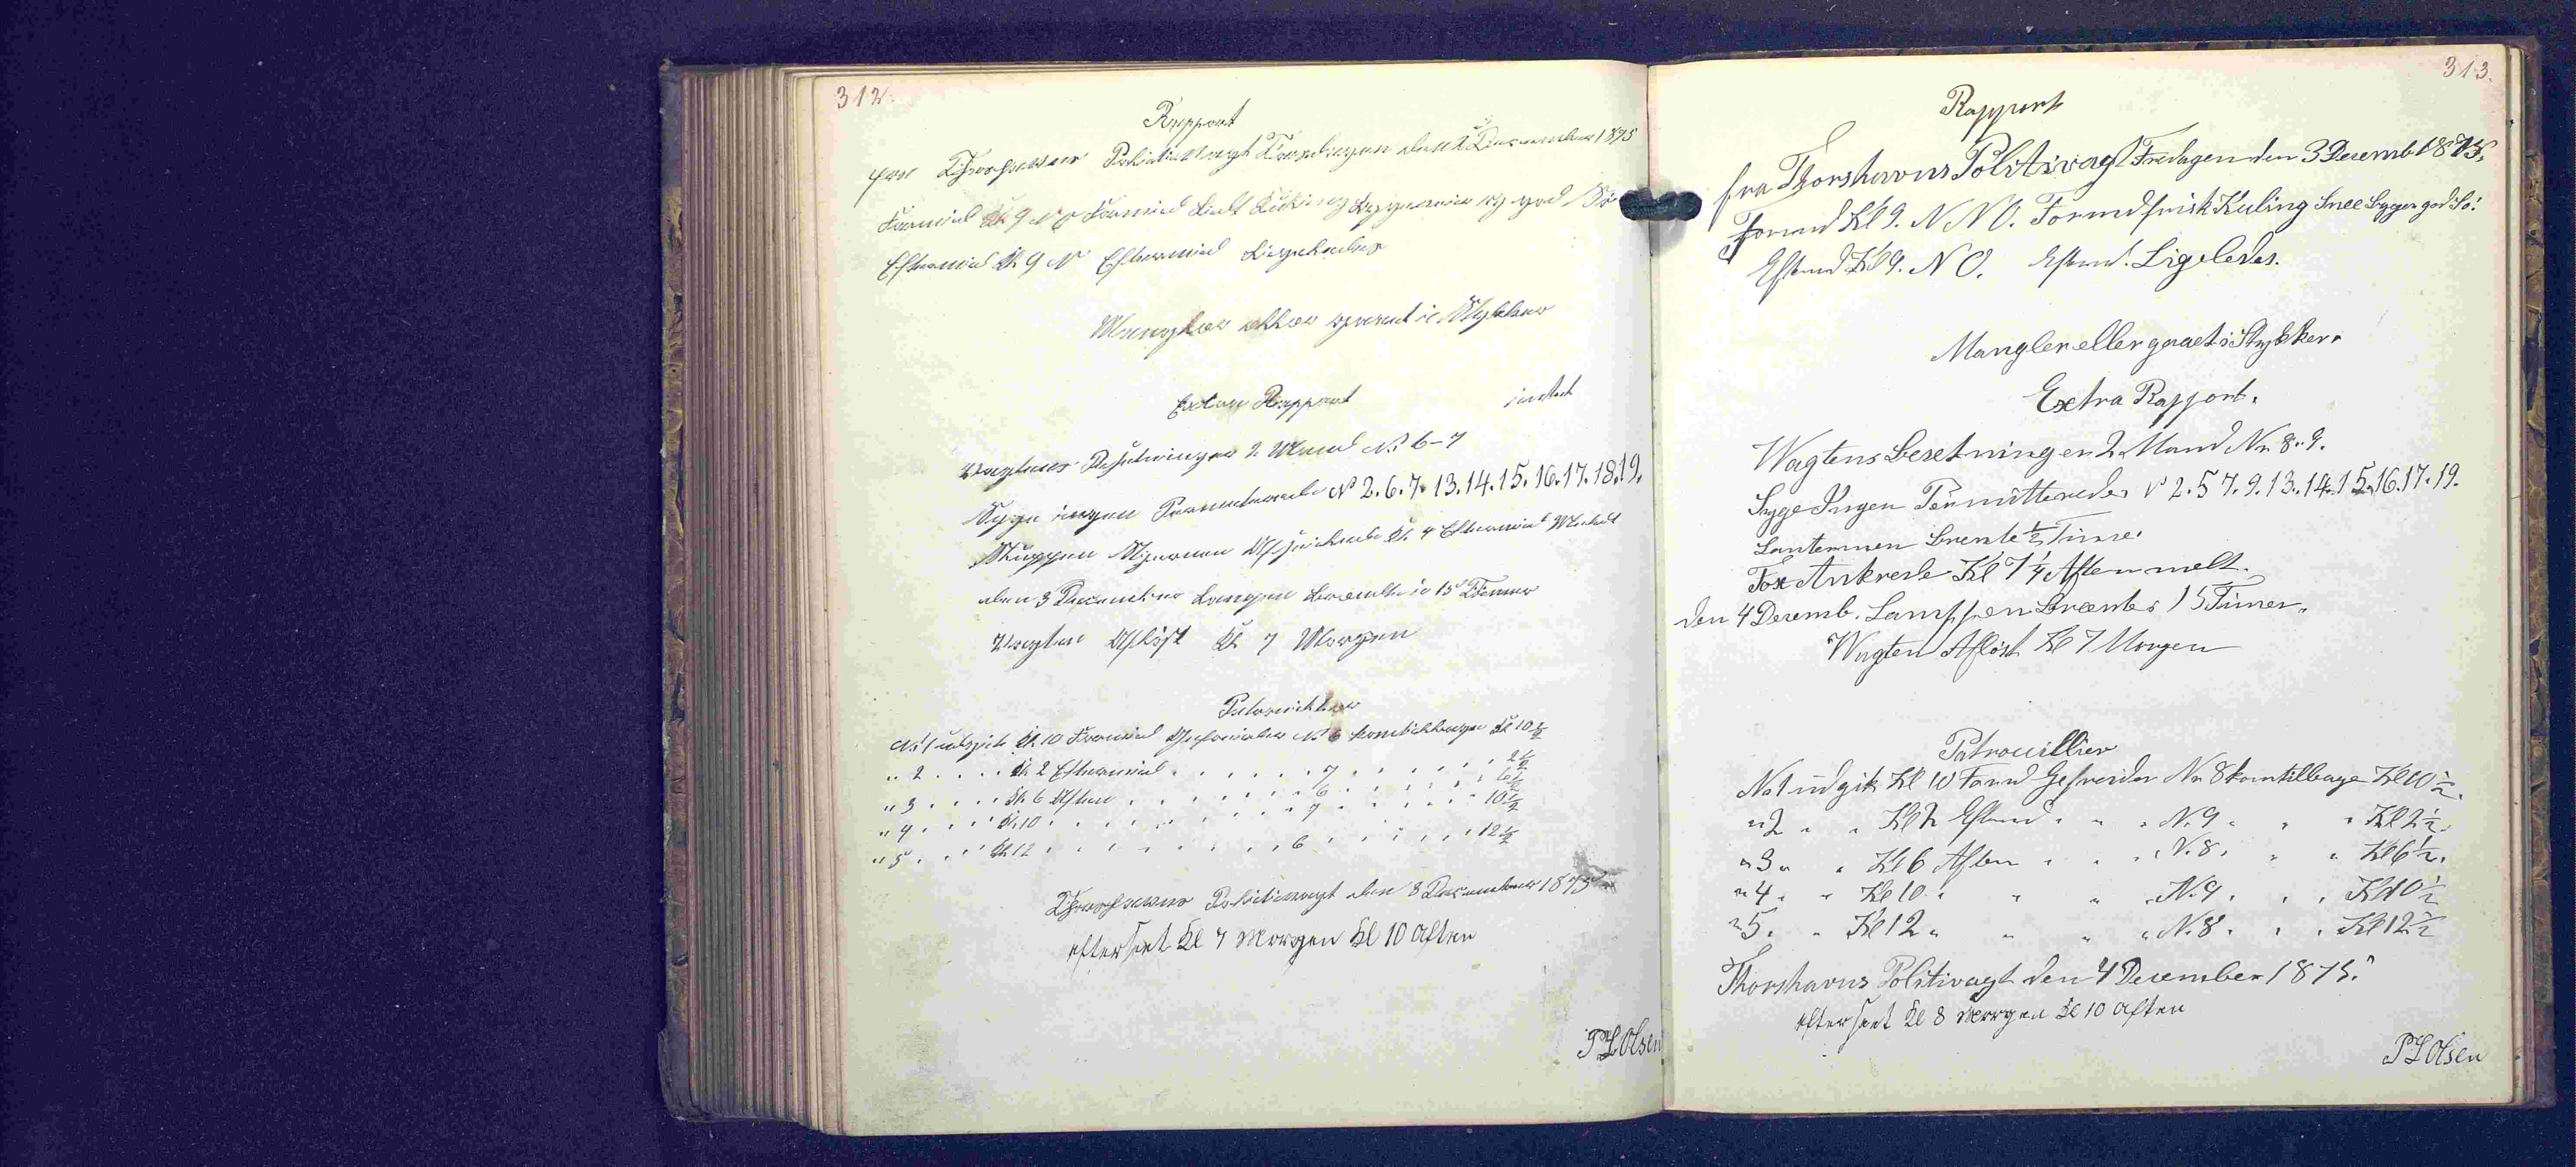 312.
Rapport
fra Thorshavns Politivagt Torsdagen den 2 December 1875
Formid Kl 9 N O Formid Kuling og god Sö
Eftermid Kl 9 N Eftermid Ligeledes
Mangler eller gaaet i Stykker
Extra Rapport intet
Vagtens Besetningen 2 Mand No 6-7
Syge ingen Permiterede No 2.6.7.13.14.15.16.17.18.19.
Kl 4 Eftermid
den 3 December Lampen brændte i 15 Timer
Vagten Aflöst Kl 7 Morgen
Patrouiller
No 1 udgik Kl 10 Formid Gefreider No 6 kom tilbage Kl 10 1/2
" 2 . . . . Kl 2 Eftermid . . . . . 7 . . . . . 2 1/2
" 3 . . . . Kl 6 Aften . . . . . 6 . . . . . 6 1/2
" 4 . . . . Kl 10 . . . . . 7 . . . . . 10 1/2
" 5 . . . . Kl 12 . . . . . 6 . . . . . 12 1/2
Thorshavns Politivagt den 3 December 1875
efterseet Kl 7 Morgen Kl 10 Aften
P L Olsen
313.
Rapport
fra Thorshavns Politivagt Fredagen den 3 Decemb 1875.
Formd Kl 9. N N O. Formd frisk Kuling Snee Byger god Sö.
Eftmd Kl 9. N O. Eftmd. Ligeledes.
Mangler eller gaaet i Stykker.
Extra Rapport.
Wagtens Besetningen 2 Mand Nr 8.9.
Syge Ingen Permitterede No 2.5 7.9.13.14.15.16.17.19.
Lanternen brente 1/2 Time.
Kl 7 1/4 Aften melt.
den 4 Decemb. Lamppen Brænte i 15 Timer.
Wagten Aflöst Kl 7 Morgen
Patrouillier
No 1 udgik Kl 10 Formd Gefreider Nr 8 kom tilbage Kl 10 1/2.
" 2 " " Kl 2 Eftmd " " " N. 9 " " " Kl 2 1/2.
" 3 " " Kl 6 Aften " " " N. 8. " " Kl 6 1/2.
" 4 " " Kl 10 " " " N. 9. " " Kl 10 1/2
" 5. " Kl 12 " " " N. 8. " " Kl 12 1/2
Thorshavns Politivagt den 4 December 1875.
efterseet Kl 8 Morgen Kl 10 Aften
P L Olsen